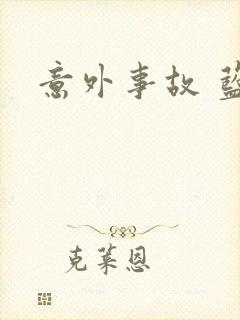 意外事故 藍
克莱恩